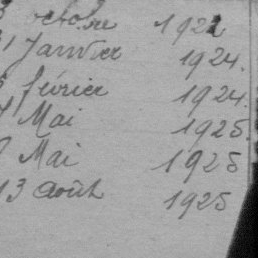 octobre 1922
Janvier 1924.
février 1924.
Mai 1925.
Mai 1925
13 août 1925